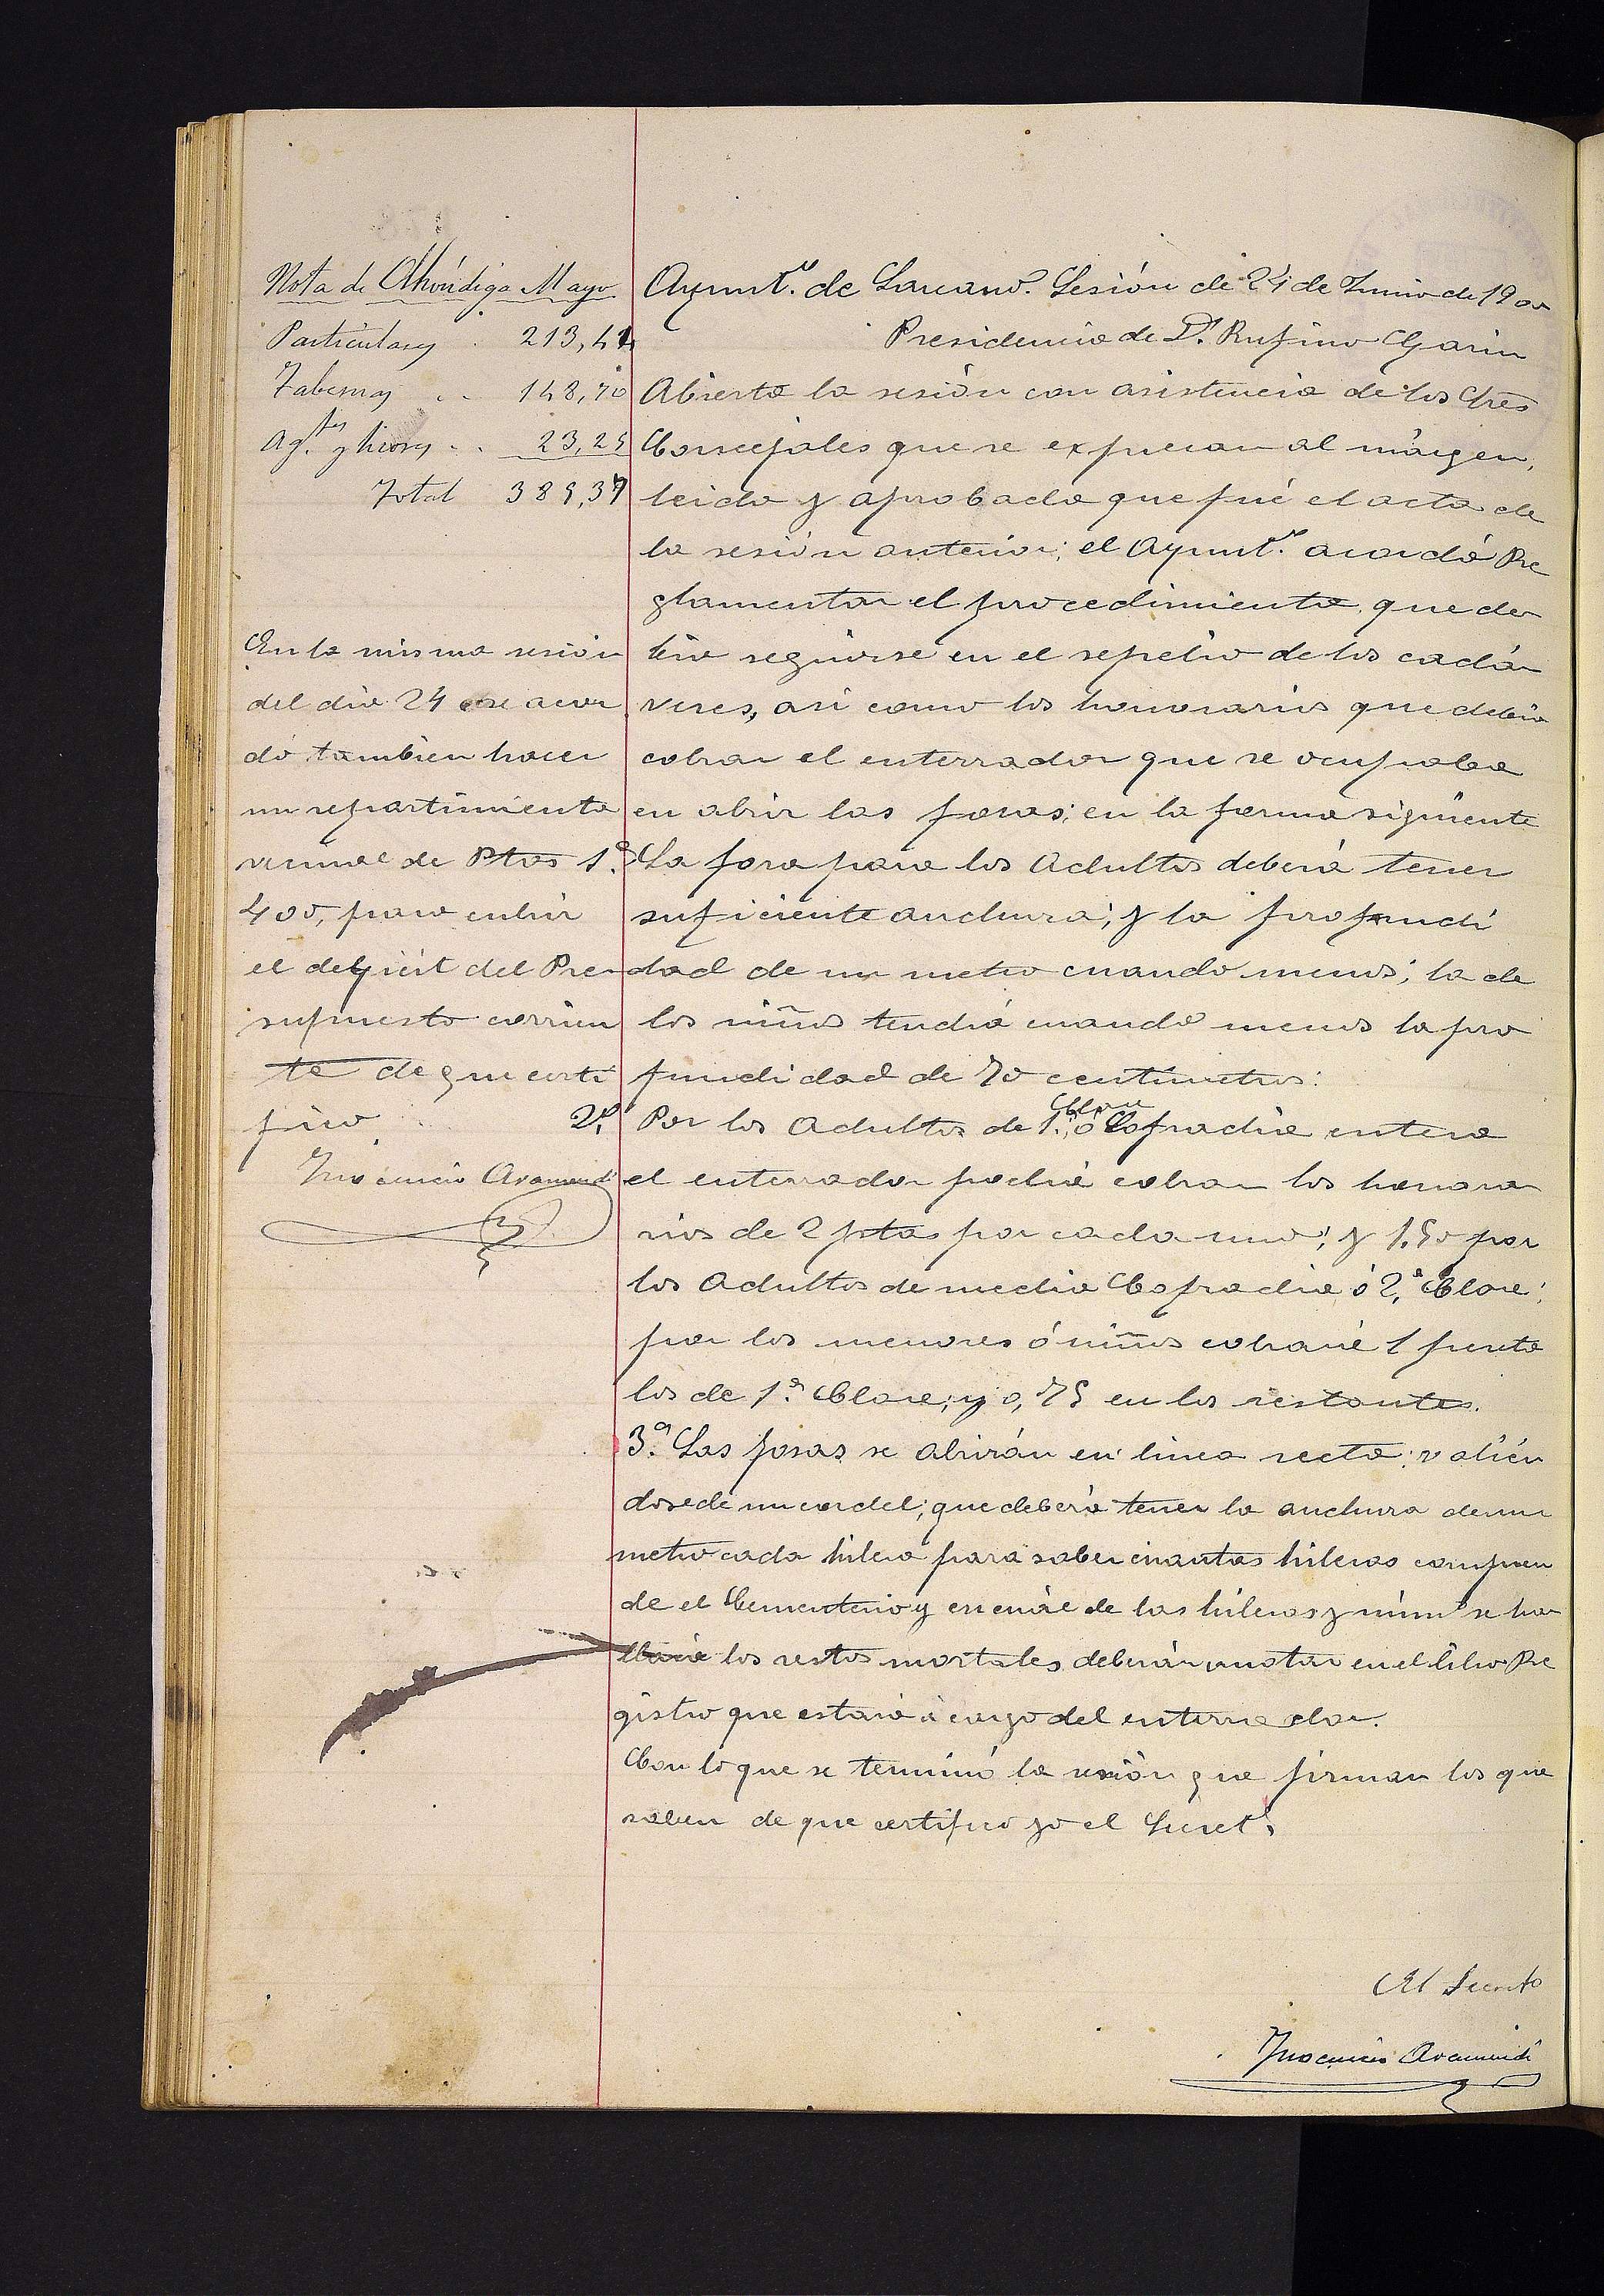 Nota de Alhóndiga Mayo
Particulares . 213,42
Tabernas . . 148,70
Ag.tes y licores . . 23,25
Total 385,37
En la misma sesión
del dia 24 se acor
dó tambien hacer
un repartimiento
vecinal de Ptas
400, para cubrir
el deficit del Pre
supuesto corrien
te de que certi
fico
Inocencio Aramendi
Ayunt.º de Lazcano. Sesión de 24 de Junio de 1900
Presidencia de D. Rufino Garin
Abierta la sesión con asistencia de los Sres
Concejales que se expresan al márgen,
leida y aprobada que fué el acta de
la sesión anterior; el Ayunt.º acordó Re
glamentar el procedimiento que de
bia seguirse en el sepelio de los cadá
veres, asi como los honorarios que debia
cobrar el enterrador que se ocupaba
en abrir las fosas; en la forma siguiente
1.ª La fosa para los Adultos deberá tener
suficiente anchura; y la profundi
dad de un metro cuando menos; la de
los niños tendrá cuando menos la pro
fundidad de 70 centimetros:
2.ª Por los Adultos de 1.ª Clase ó Cofradia entera
el enterrador podrá cobrar los honora
rios de 2 ptas por cada uno; y 1,50 por
los Adultos de media Cofradia ó 2.ª Clase;
por los menores ó niños cobrará 1 peseta
los de 1.ª Clase; y 0,75 en los restantes.
3.ª Las fosas se abrirán en linea recta; valién
dose de un cordel; que deberá tener la anchura de un
metro cada hilera para saber cuantas hileras compren
de el Cementerio y en cuál de las hileras y núm.º se ha
llaria los restos mortales deberán anotar en el libro Re
gistro que estará á cargo del enterrador.
Con lo que se terminó la sesión que firman los que
saben de que certifico yo el Secret.º
El Secreto
Inocencio Aramendi